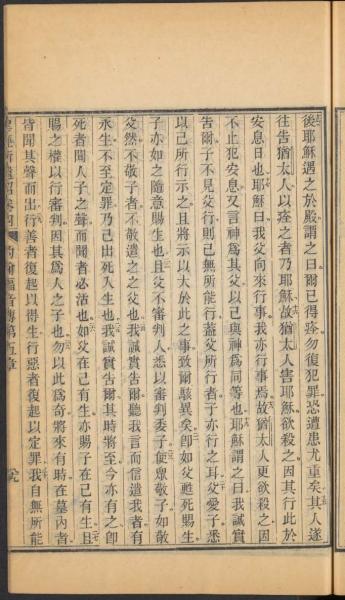 後耶穌遇之於殿謂之曰爾已得痊勿復犯罪恐遭患尤重矣其人遂
往告猶太人以痊之者乃耶穌故猶太人害耶穌欲殺之因其行此於
安息日也耶穌曰我父向來行事我亦行事焉故猶太人更欲殺之因
不止犯安息又言神爲其父以己與神爲同等也耶穌謂之曰我誠實
告爾子不見父行則己無所能行蓋父所行者子亦行之耳父愛子悉
以己所行示之且將示以大於此之事致爾駭異矣卽如父甦死賜生
子亦如之隨意賜生也且父不審判人悉以審判委子使眾敬子如敬
父然不敬子者不敬遣之之父也我誠實告爾聽我言而信遣我者有
永生不至定罪乃已出死入生也我誠實告爾其時將至今亦有之卽
死者聞人子之聲而聞者必活也如父在己有生亦賜子在己有生且
賜之權以行審判因其爲人之子也勿以此爲奇將來有時在墓內者
皆聞其聲而出行善者復起以得生行惡者復起以定罪我自無所能
約翰福音傳第五章